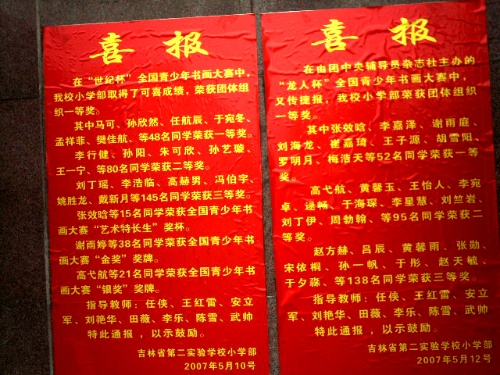 喜报
在“世纪杯”全国青少年书画大赛中，
我校小学部取得了可喜成绩，荣获团体组
织一等奖。
其中马可、孙欣然、任航辰、于宛冬、
孟祥菲、樊佳航、等48名同学荣获一等奖。
李行健、孙阳、朱可欣、孙艺璇、
王一宁、等80名同学荣获二等奖。
刘丁瑶、李浩临、高赫男、冯伯宇、
姚胜龙、戴新月等145名同学荣获三等奖。
张效晗等15名同学荣获全国青少年书
画大赛“艺术特长生”奖杯。
谢雨婷等38名同学荣获全国青少年书
画大赛“金奖”奖牌。
高弋航等21名同学荣获全国青少年书
画大赛“银奖”奖牌。
指导教师：任侠、王红雷、安立
军、刘艳华、田薇、李乐、陈雪、武帅
特此通报，以示鼓励。
吉林省第二实验学校小学部
2007年5月10号
喜报
在由团中央辅导员杂志社主办的
“龙人杯”全国青少年书画大赛中，
又传捷报，我校小学部荣获团体组
织一等奖。
其中张效晗、李嘉泽、谢雨庭、
刘海龙、崔嘉琦、王子源、胡雪阳、
罗明月、梅浩天等52名同学荣获一等
奖。
高弋航、黄馨玉、王怡人、李宛
卓、逯畅、于海琛、李星慧、刘竺岩、
刘丁伊、周勃翰、等95名同学荣获二
等奖。
赵方赫、吕辰、黄馨雨、张勋、
宋依桐、孙一帆、于彤、赵天敏、
于夕蕠、等138名同学荣获三等奖。
指导教师：任侠、王红雷、安立
军、刘艳华、田薇、李乐、陈雪、武帅
特此通报，以示鼓励。
吉林省第二实验学校小学部
2007年5月12号